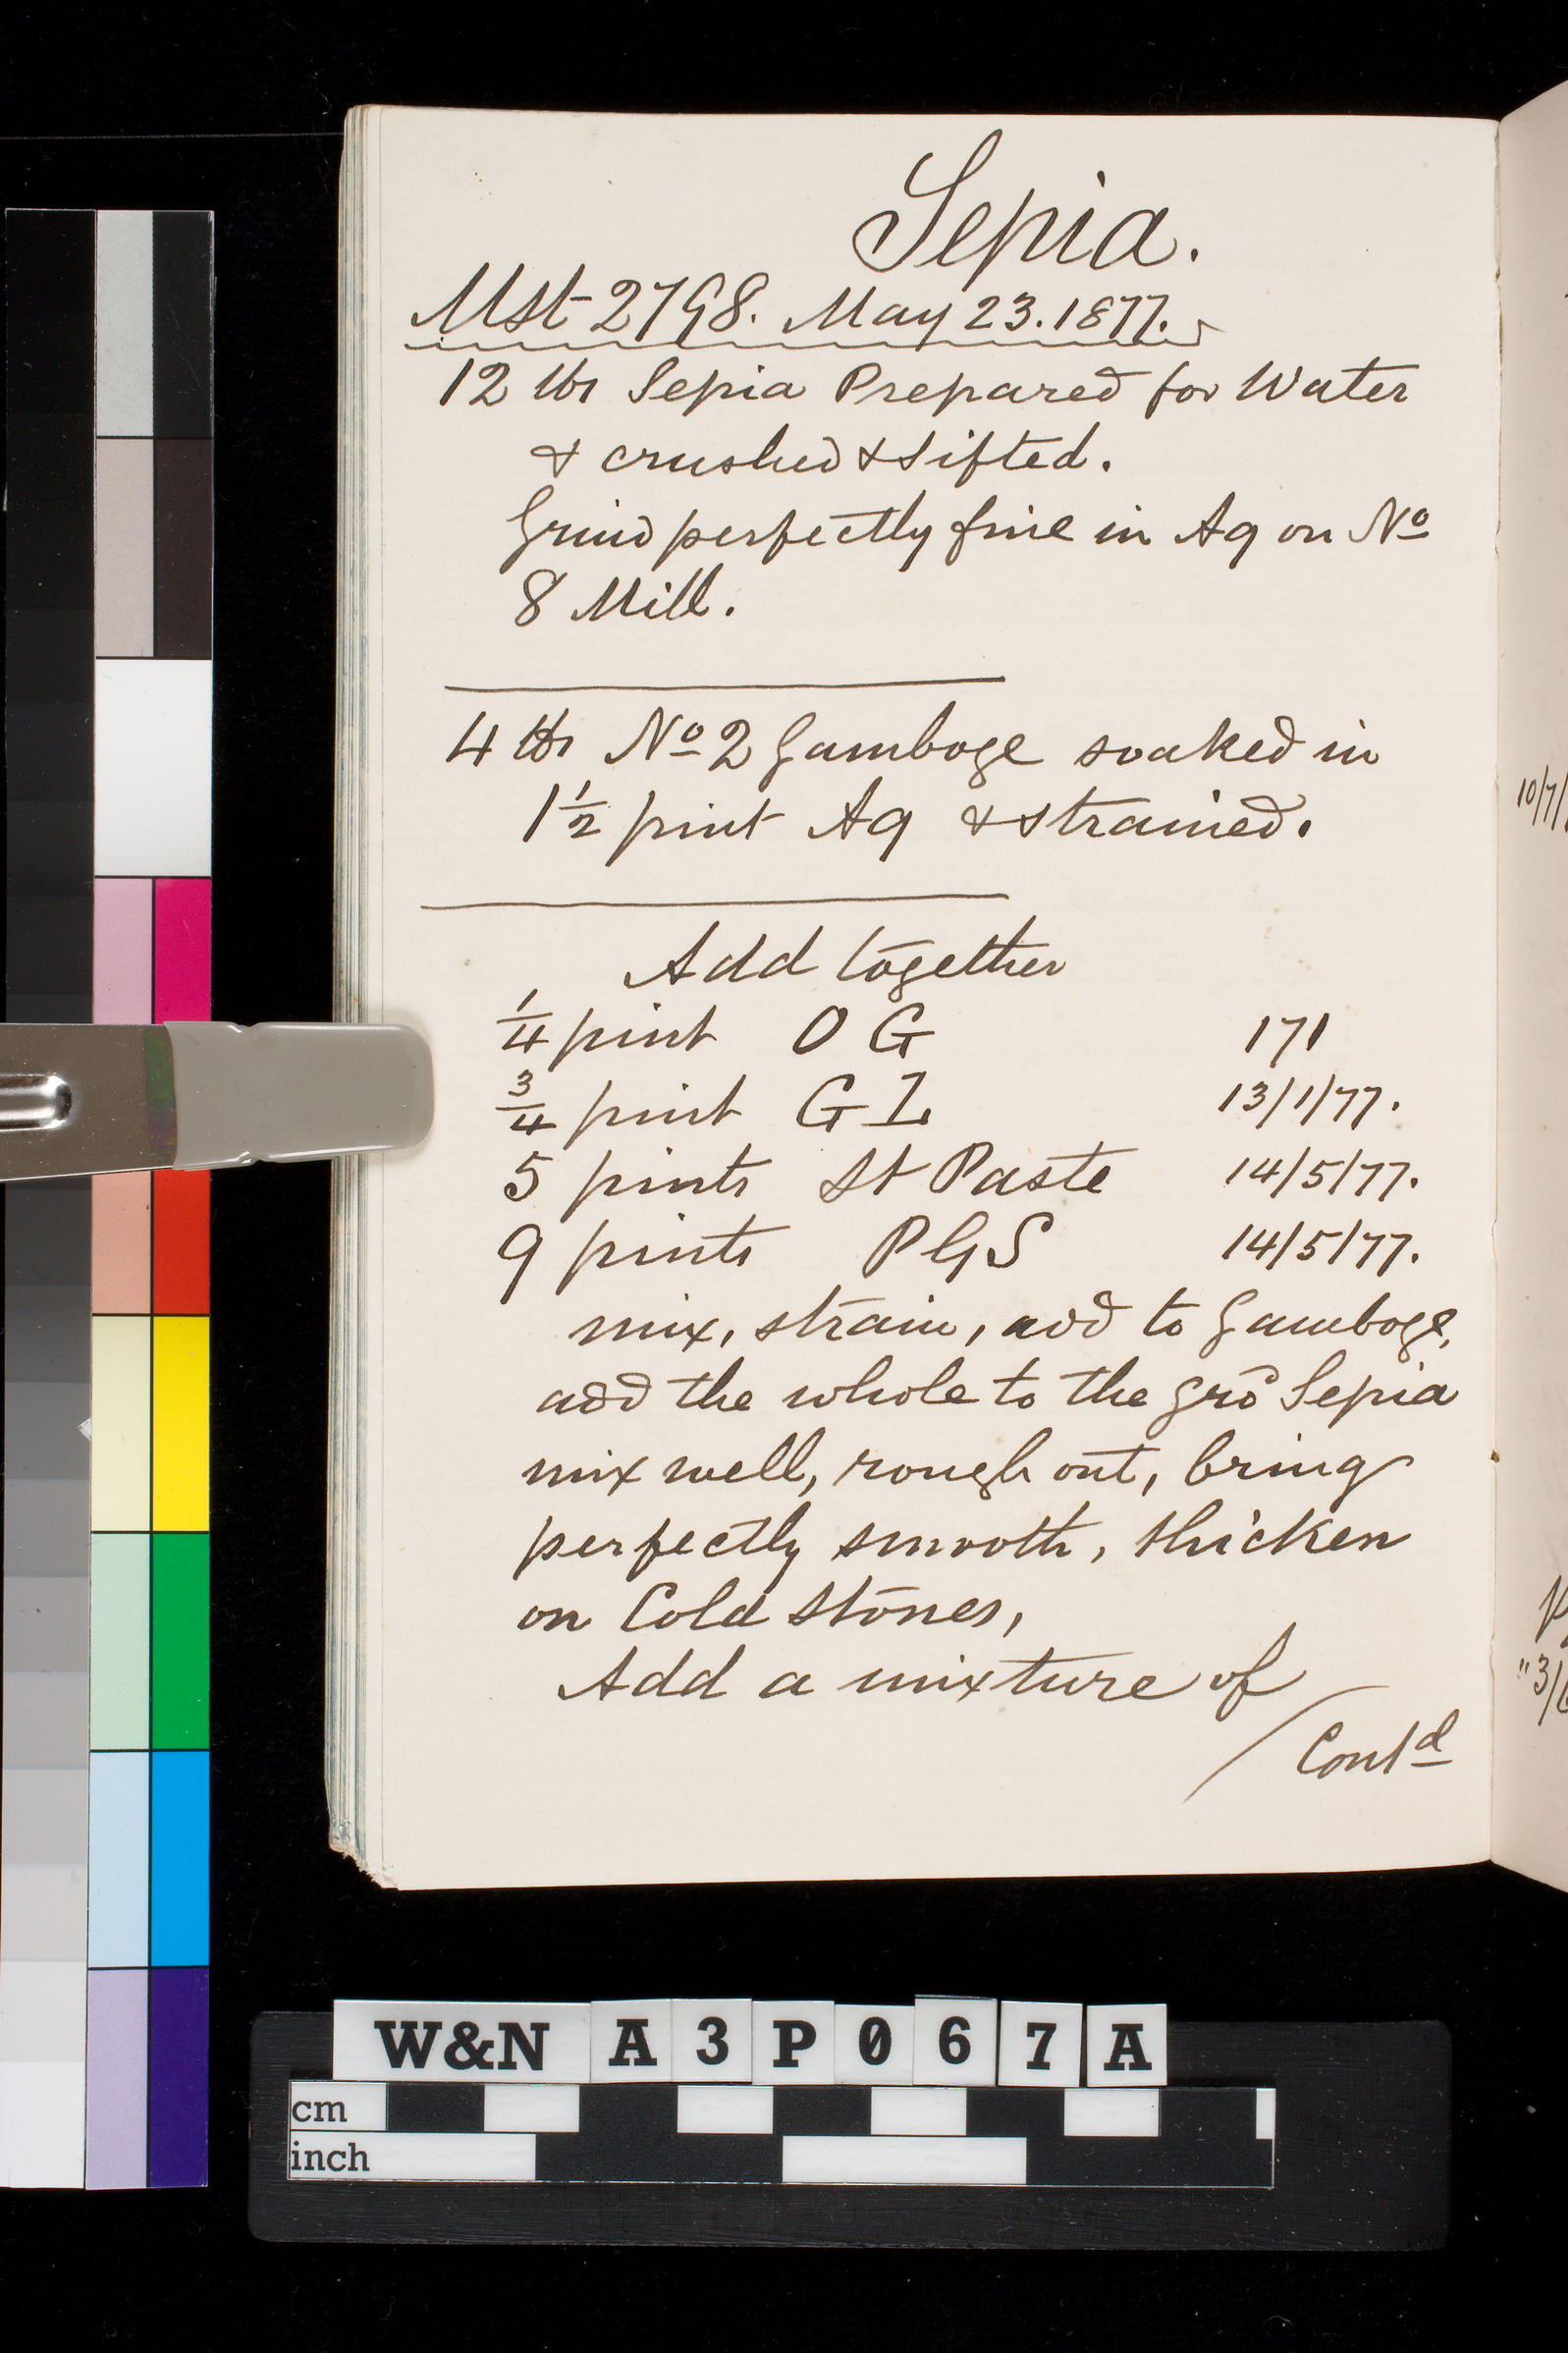 Sepia.
Mst 2798. May 23. 1877.
12 lbs Sepia Prepared for Water
& crushed & sifted.
Grind perfectly fine in Aq on No
8 Mill.
4 lbs No 2 Gamboge soaked in
1½ pint Aq & strained.
Add together
¼ pint O G 171
¾ pint G I 13/1/77.
5 pints St Paste 14/5/77.
9 pints P G S 14/5/77.
mix, strain, add to Gamboge,
add the whole to the grd Sepia
mix well, rough out, bring
perfectly smooth, thicken
on Cold Stones,
Add a mixture of
Contd
10/7/
"3/
W&N A3P067A
cm
inch